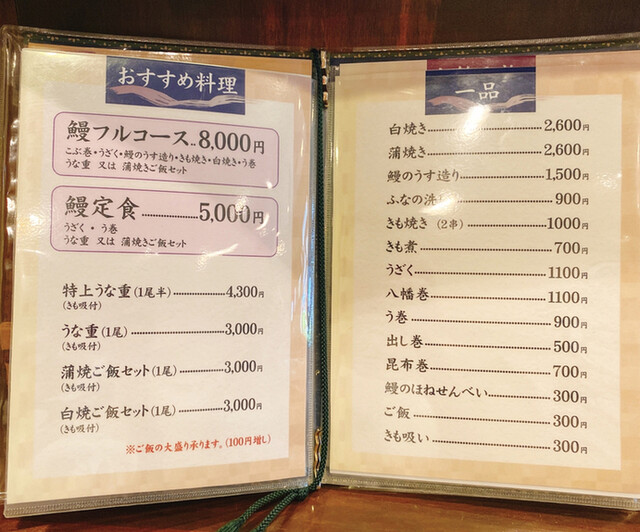 おすすめ料理
鰻フルコース‥8,000円
こぶ巻・うざく・鰻のうす造り・きも焼き・白焼き・う巻
うな重 又は 蒲焼きご飯セット
鰻定食………5,000円
うざく ・ う巻
うな重 又は 蒲焼きご飯セット
特上うな重(1尾半)………4,300円
(きも吸付)
うな重(1尾)………3,000円
(きも吸付)
蒲焼ご飯セット(1尾)………3,000円
(きも吸付)
白焼ご飯セット(1尾)………3,000円
(きも吸付)
※ご飯の大盛り承ります。(100円増し)
一品
白焼き………2,600円
蒲焼き………2,600円
鰻のうす造り………1,500円
ふなの洗………900円
きも焼き (2串)………1000円
きも煮………700円
うざく………1100円
八幡巻………1100円
う巻………900円
出し巻………500円
昆布巻………700円
鰻のほねせんべい………300円
ご飯………300円
きも吸い………300円